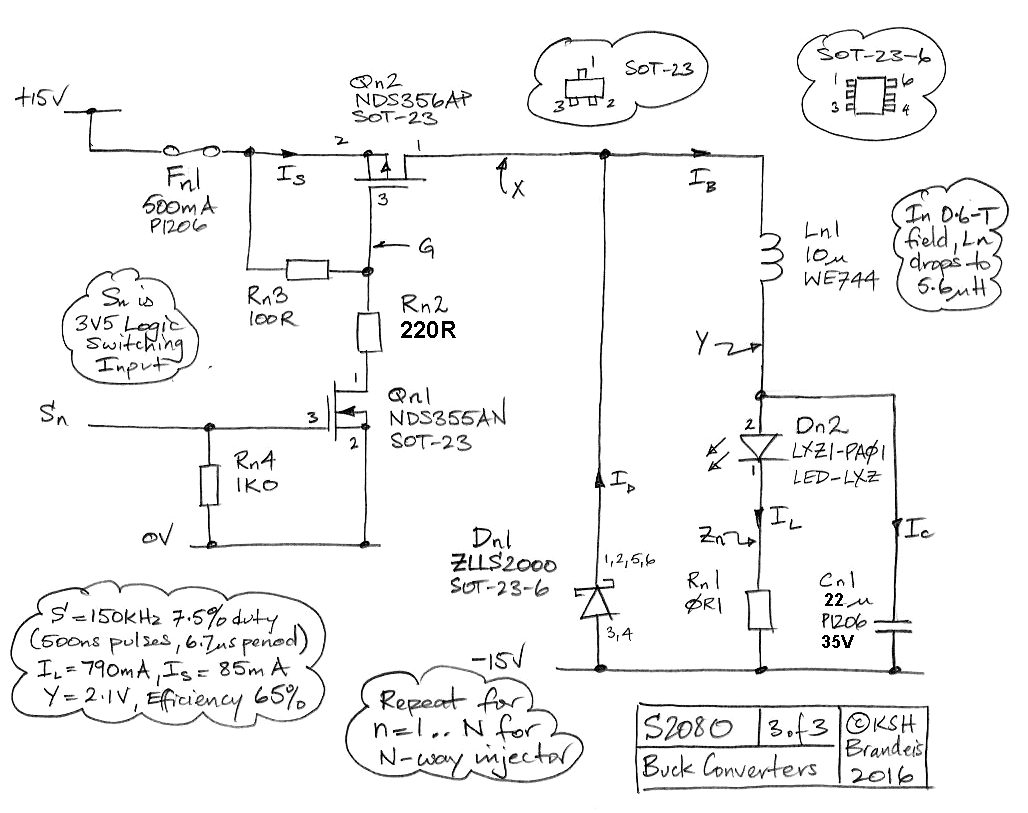 +15V
Fn1
500mA
P1206
IS
Qn2
NDS356AP
SOT-23
2
1
3
G
X
1
SOT-23
3
2
SOT-23-6
1
6
3
4
IB
Ln1
10µ
WE744
In 0.6-T
field, Ln
drops to
5.6µH
Rn3
100R
Rn2
220R
Sn is
3V5 Logic
Switching
Input
Sn
Rn4
1K0
0V
1
3
2
Qn1
NDS355AN
SOT-23
Y
2
1
Dn2
LXZ1-PAØ1
LED-LXZ
ID
IL
Zn
IC
Dn1
ZLLS2000
SOT-23-6
1,2,5,6
3,4
Rn1
ØR1
Cn1
22µ
P1206
35V
-15V
S=150kHz 7.5% duty
(500ns pulses, 6.7µs period)
IL=790mA, IS=85mA
Y=2.1V, Efficiency 65%
Repeat for
n=1..N for
N-way injector
S2080
3 of 3
Buck Converters
©KSH
Brandeis
2016